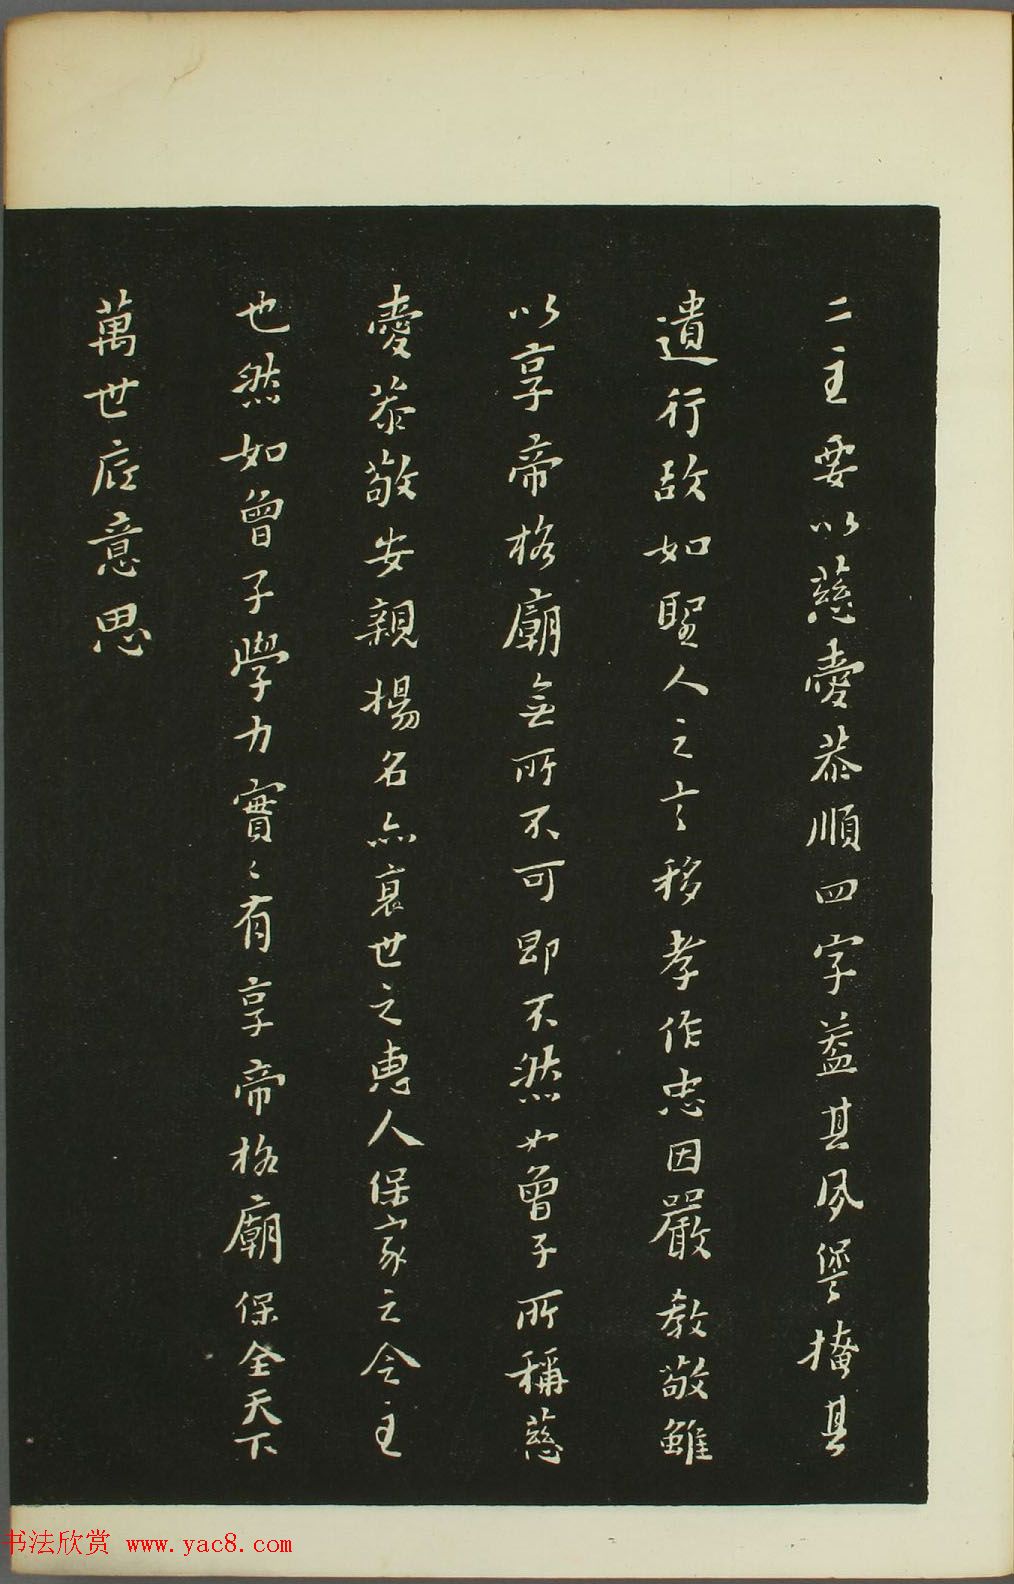 二主要以慈愛恭順四字蓋其夙愆掩其
遺行故如聖人之言移孝作忠因嚴教敬雖
以享帝格廟無所不可即不然如曾子所稱慈
愛恭敬安親揚名亦衰世之惠人保家之令主
也然如曾子學力實〻有享帝格廟保全天下
萬世底意思
书法欣赏 www.yac8.com